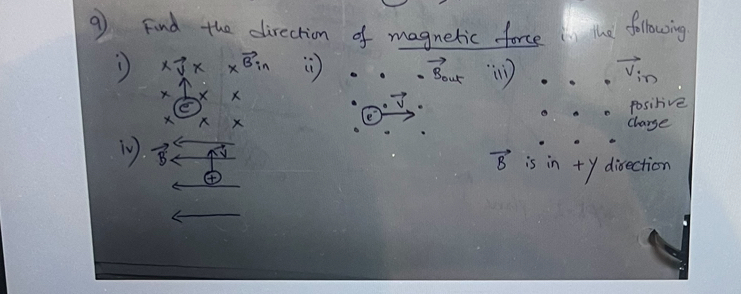 9) Find the direction of magnetic force in the following.
i) x v⃗ x x B⃗in ii) B⃗out iii) V⃗in
x e⁻ x x e⁻ v⃗ positive
x x x charge
iv) B⃗ v⃗ + B⃗ is in +y direction